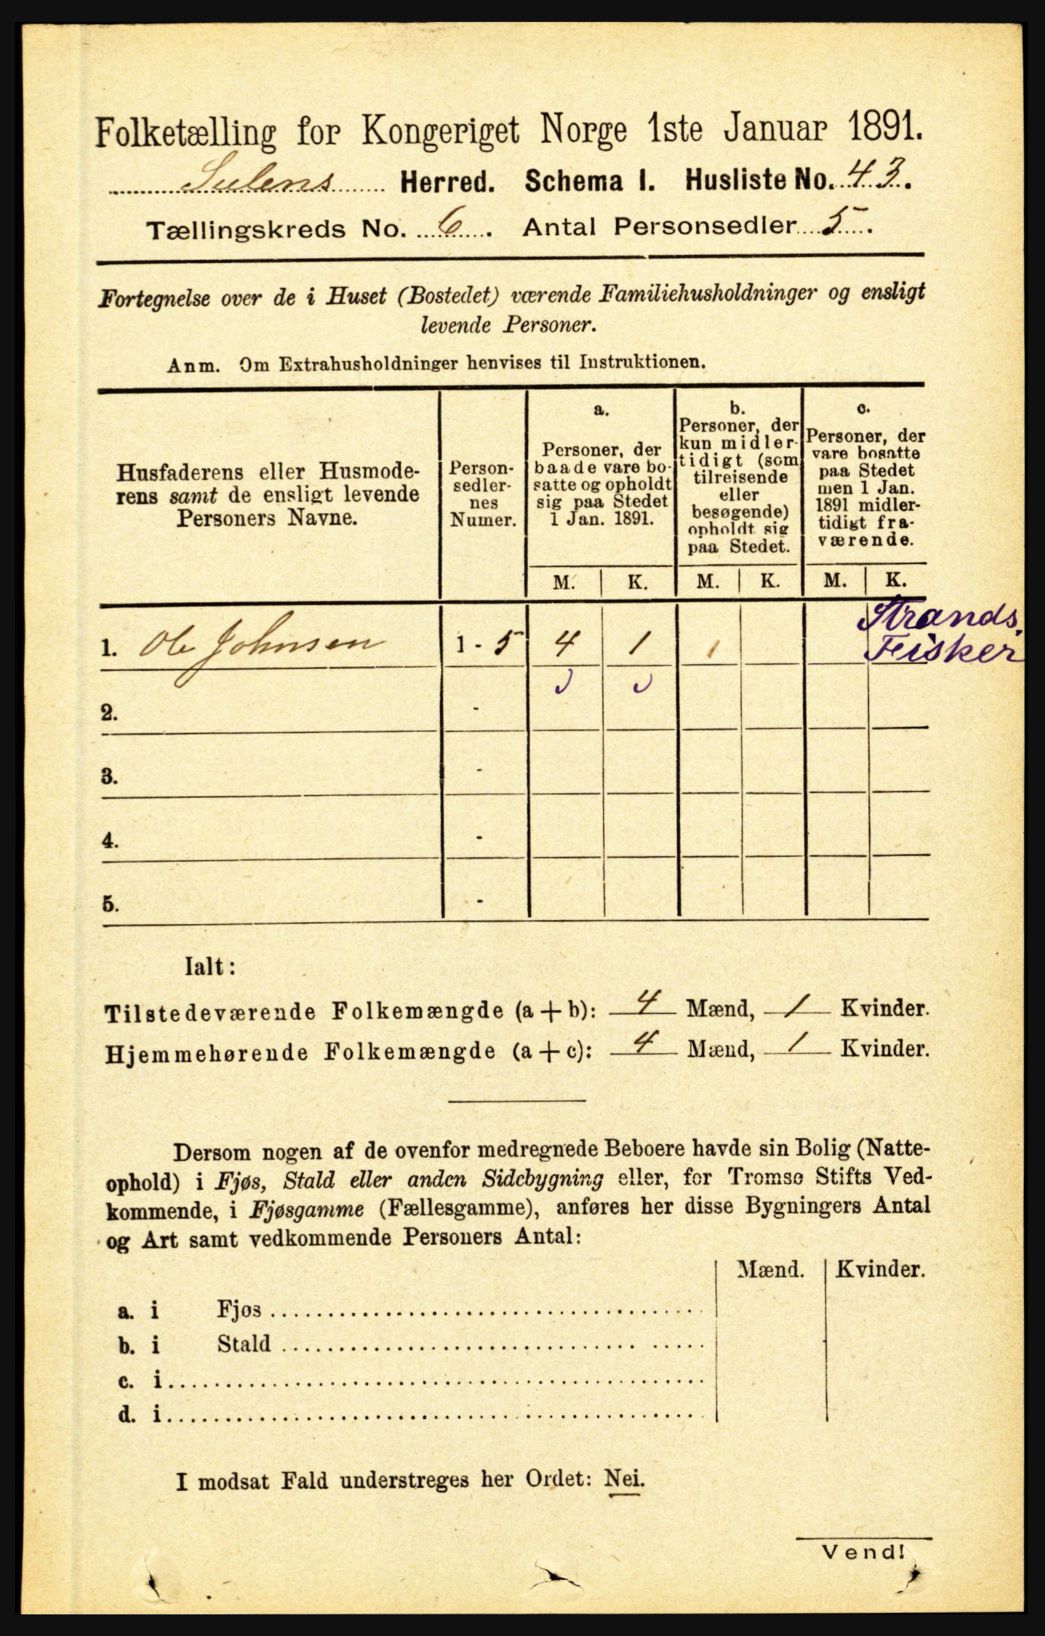 Folketælling for Kongeriget Norge 1ste Januar 1891.
Sulens Herred. Schema I. Husliste No. 43.
Tællingskreds No. 6. Antal Personsedler 5.
Fortegnelse over de i Huset (Bostedet) værende Familiehusholdninger og ensligt
levende Personer.
Anm. Om Extrahusholdninger henvises til Instruktionen.
Husfaderens eller Husmode-
rens samt de ensligt levende
Personers Navne.
Person-
sedler-
nes
Numer.
a.
Personer, der
baade vare bo-
satte og opholdt
sig paa Stedet
1 Jan. 1891.
b.
Personer, der
kun midler-
tidigt (som
tilreisende
eller
besøgende)
opholdt sig
paa Stedet.
c.
Personer, der
vare bosatte
paa Stedet
men 1 Jan.
1891 midler-
tidigt fra-
værende.
M. K. M. K. M. K.
Strands.
1. Ole Johnsen 1 - 5 4 1 1 Fisker
2. -
3. -
4. -
5. -
Ialt:
Tilstedeværende Folkemængde (a + b): 4 Mænd, 1 Kvinder.
Hjemmehørende Folkemængde (a + c): 4 Mænd, 1 Kvinder.
Dersom nogen af de ovenfor medregnede Beboere havde sin Bolig (Natte-
ophold) i Fjøs, Stald eller anden Sidebygning eller, for Tromsø Stifts Ved-
kommende, i Fjøsgamme (Fællesgamme), anføres her disse Bygningers Antal
og Art samt vedkommende Personers Antal:
Mænd. Kvinder.
a. i Fjøs
b. i Stald
c. i
d. i
I modsat Fald understreges her Ordet: Nei.
Vend!